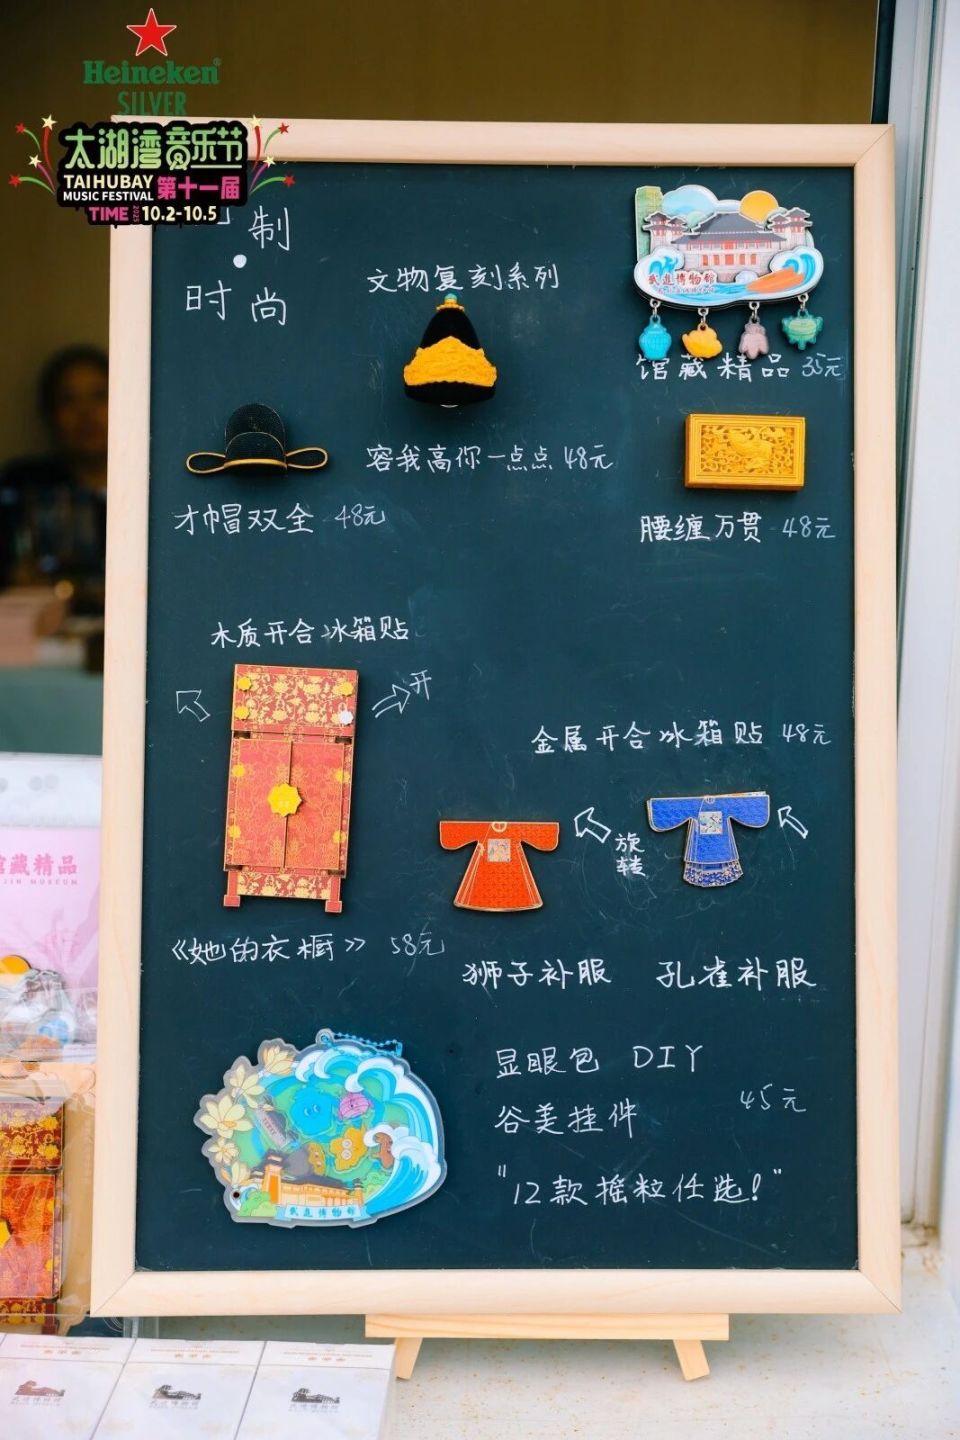 Heineken
SILVER
太湖湾音乐节
TAIHUBAY
MUSIC FESTIVAL
第十一届
TIME 2025 10.2-10.5
制
时尚
文物复刻系列
武進博物館
馆藏精品 35元
容我高你一点点 48元
才帽双全 48元
腰缠万贯 48元
木质开合冰箱贴
开
金属开合冰箱贴 48元
旋转
《她的衣橱》 58元
狮子补服 孔雀补服
显眼包 DIY
谷美挂件 45元
"12款摇粒任选!"
武進博物館
馆藏精品
JIN MUSEUM
武進博物館